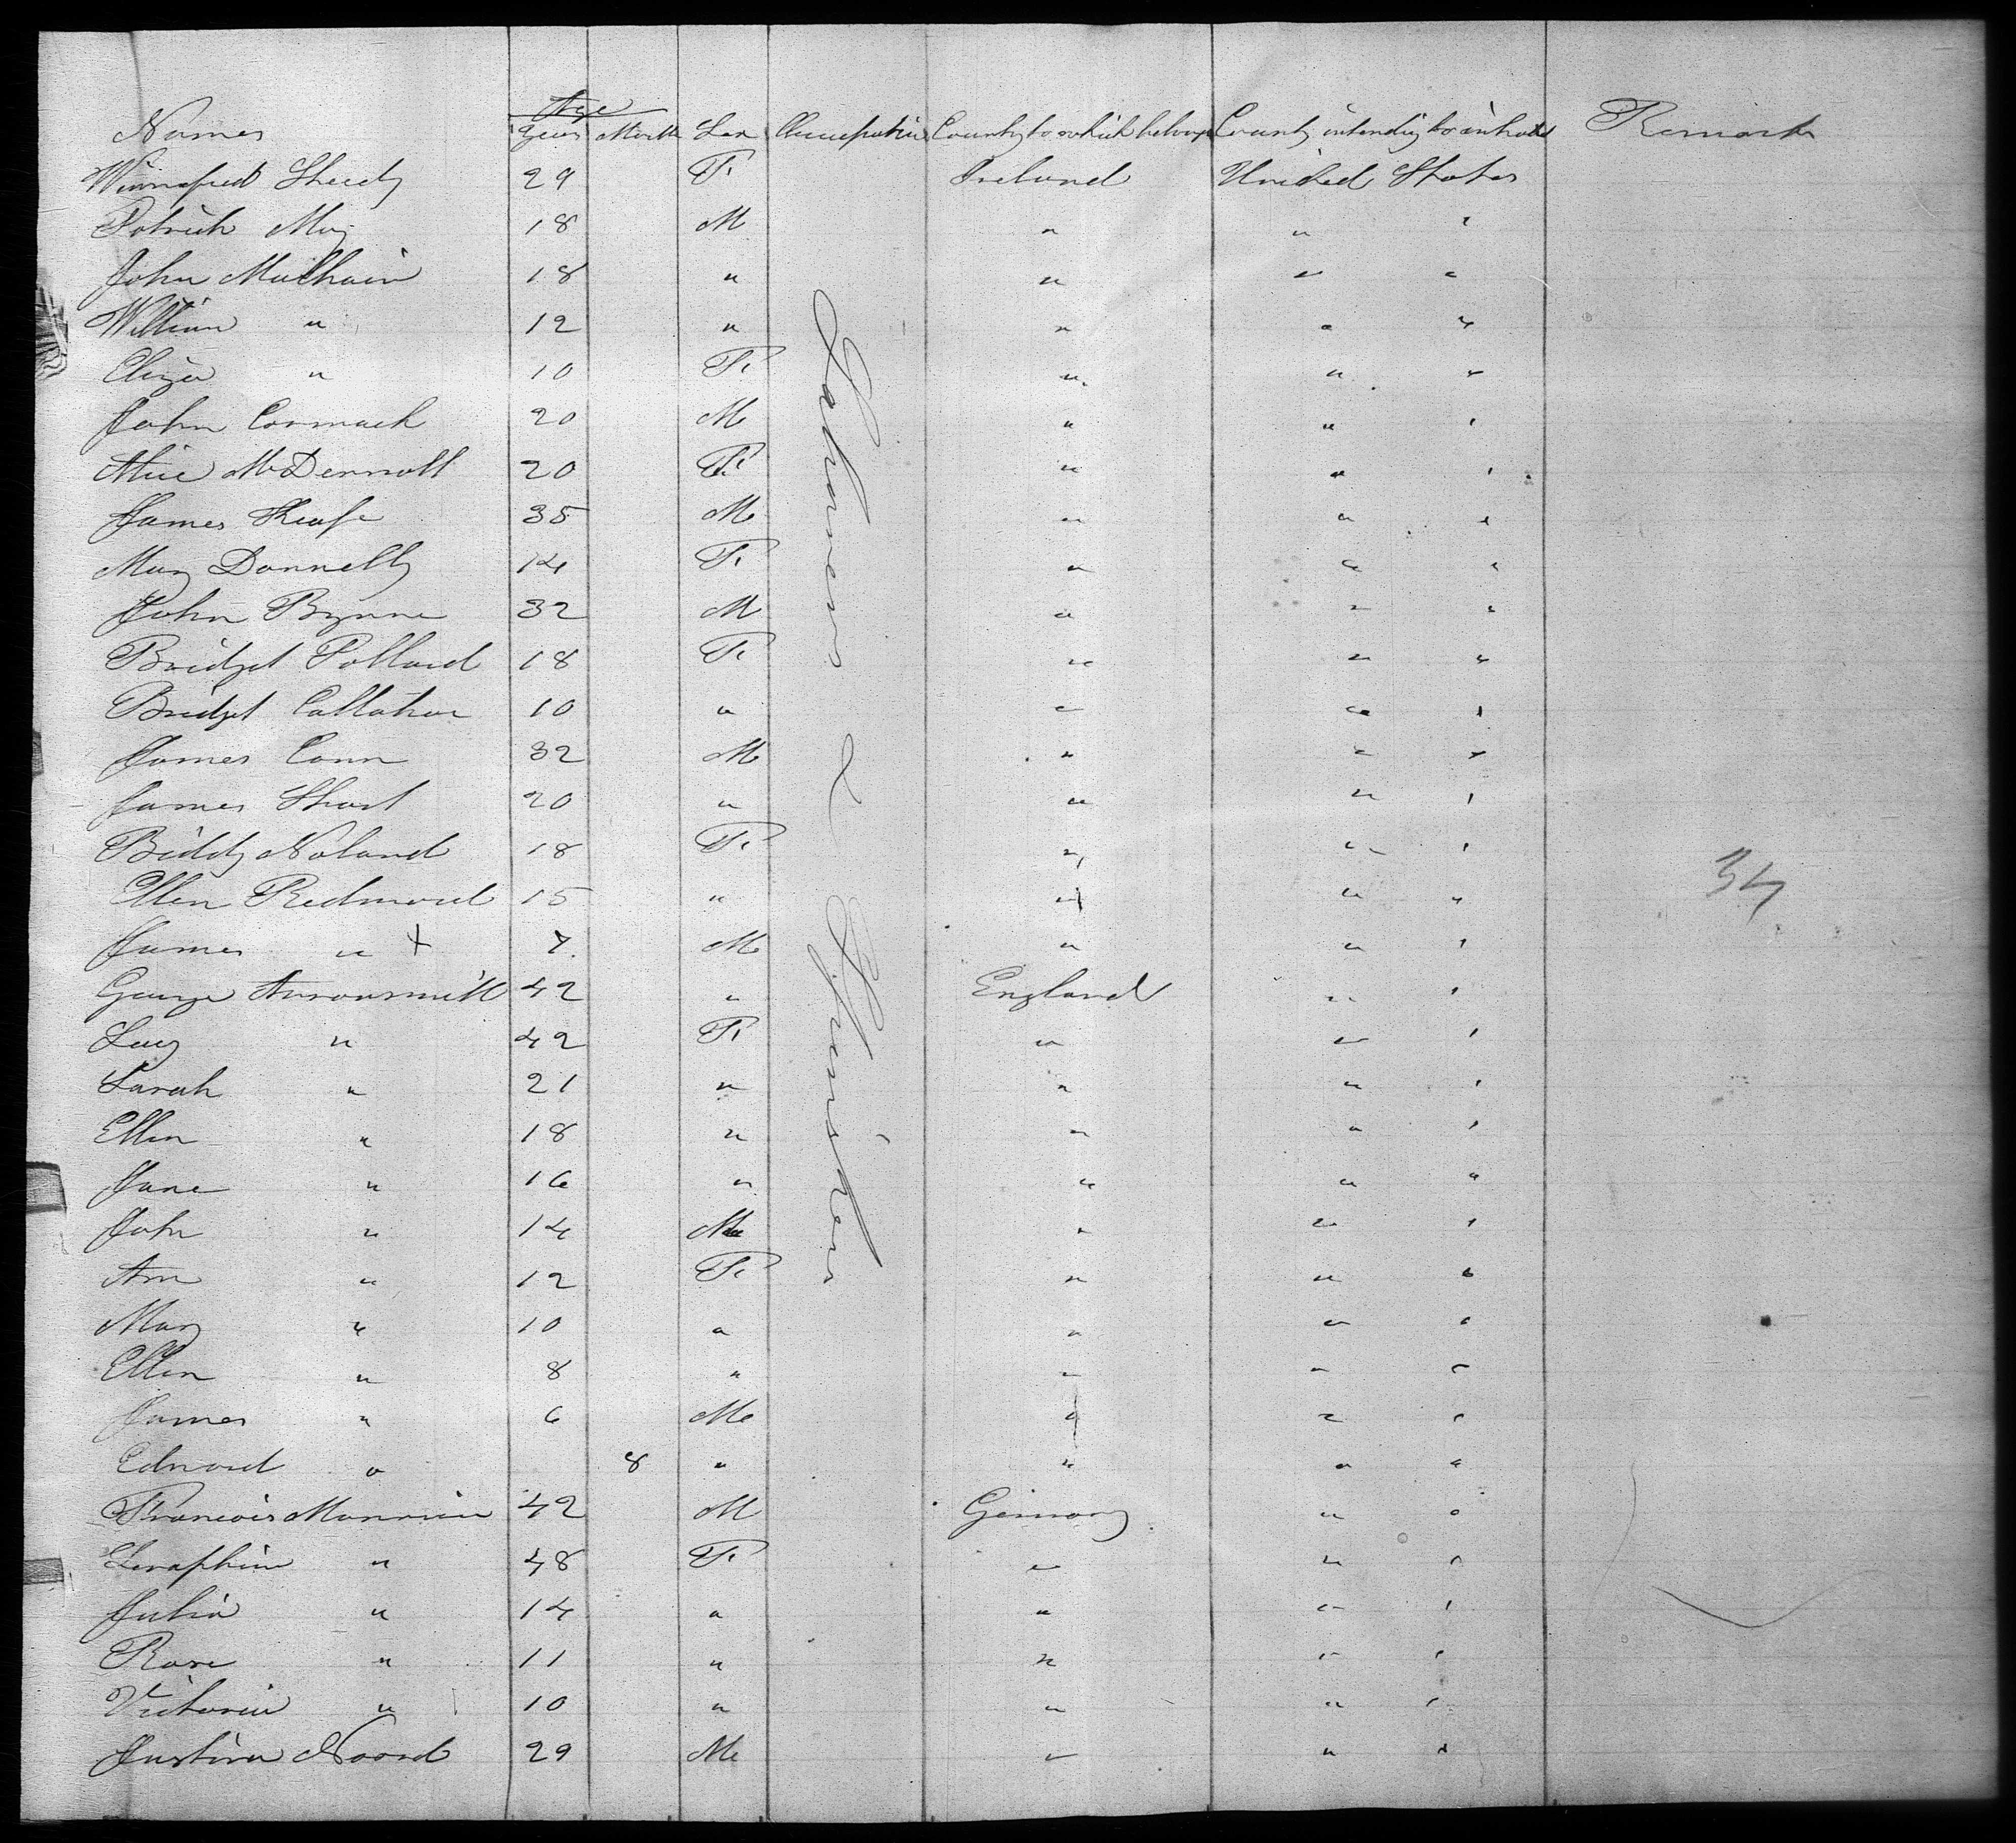 Age
Names Years Month Sex Occupation Country to which belongs Country intending to inhabit Remarks
Winnafred Sheedy 29 F. Ireland United States
Patrick May 18 M " " "
John Mulhain 18 " " " "
William " 12 " " " "
Eliza " 10 F. " " "
John Cormack 20 M " " "
Alice McDermott 20 F. " " "
James Keafe 35 M " " "
Mary Donnelly 14 F. " " "
John Byrne 32 M " " "
Bridget Pollard 18 F. " " "
Bridget Callahan 10 " " " "
James Conn 32 M " " "
James Short 20 " " " "
Biddy Noland 18 F. " " "
Ellen Redmond 15 " " " "
James " + 7. M " " "
George Arrowsmith 42 " England " "
Lucy " 42 F. " " "
Sarah " 21 " " " "
Ellen " 18 " " " "
Jane " 16 " " " "
John " 14 M " " "
Ann " 12 F. " " "
Mary " 10 " " " "
Ellen " 8 " " " "
James " 6 M " " "
Edward " 8 " " " "
Francois 42 M Germany " "
Seraphine " 48 F. " " "
Julia " 14 " " " "
Rose " 11 " " " "
Victoria " 10 " " " "
Justina Noord 29 M " " "
Labourers & Spinsters
34